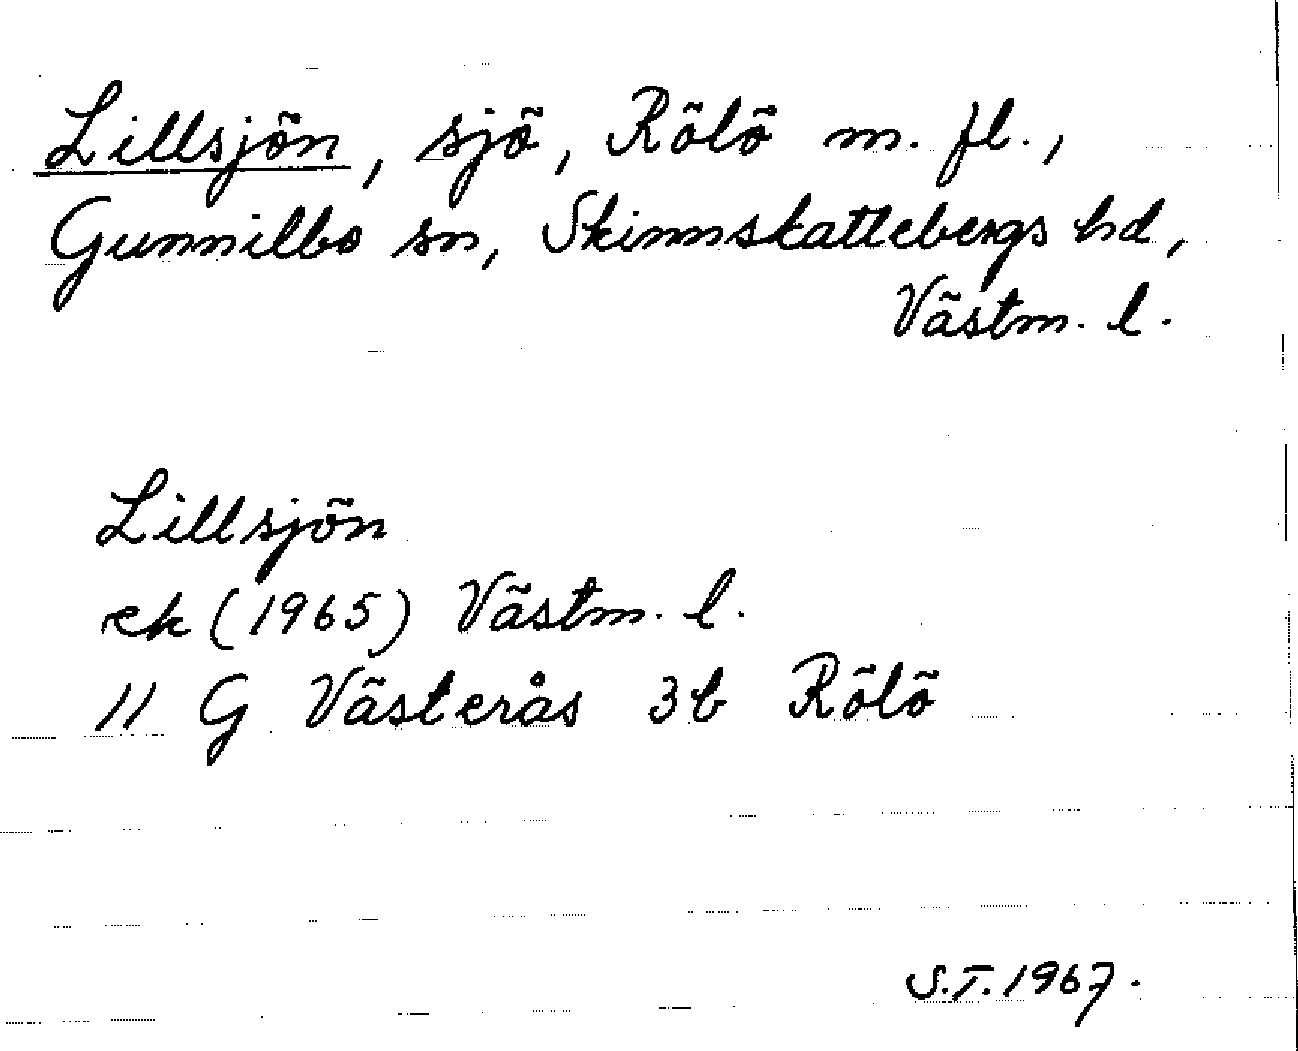 Lillsjön, sjö, Rölö m. fl.,
Gunnilbo sn, Skinnskattebergs hd,
Västm. l.
Lillsjön
ek (1965) Västm. l.
11 G Västerås 3b Rölö
S.T. 1967.